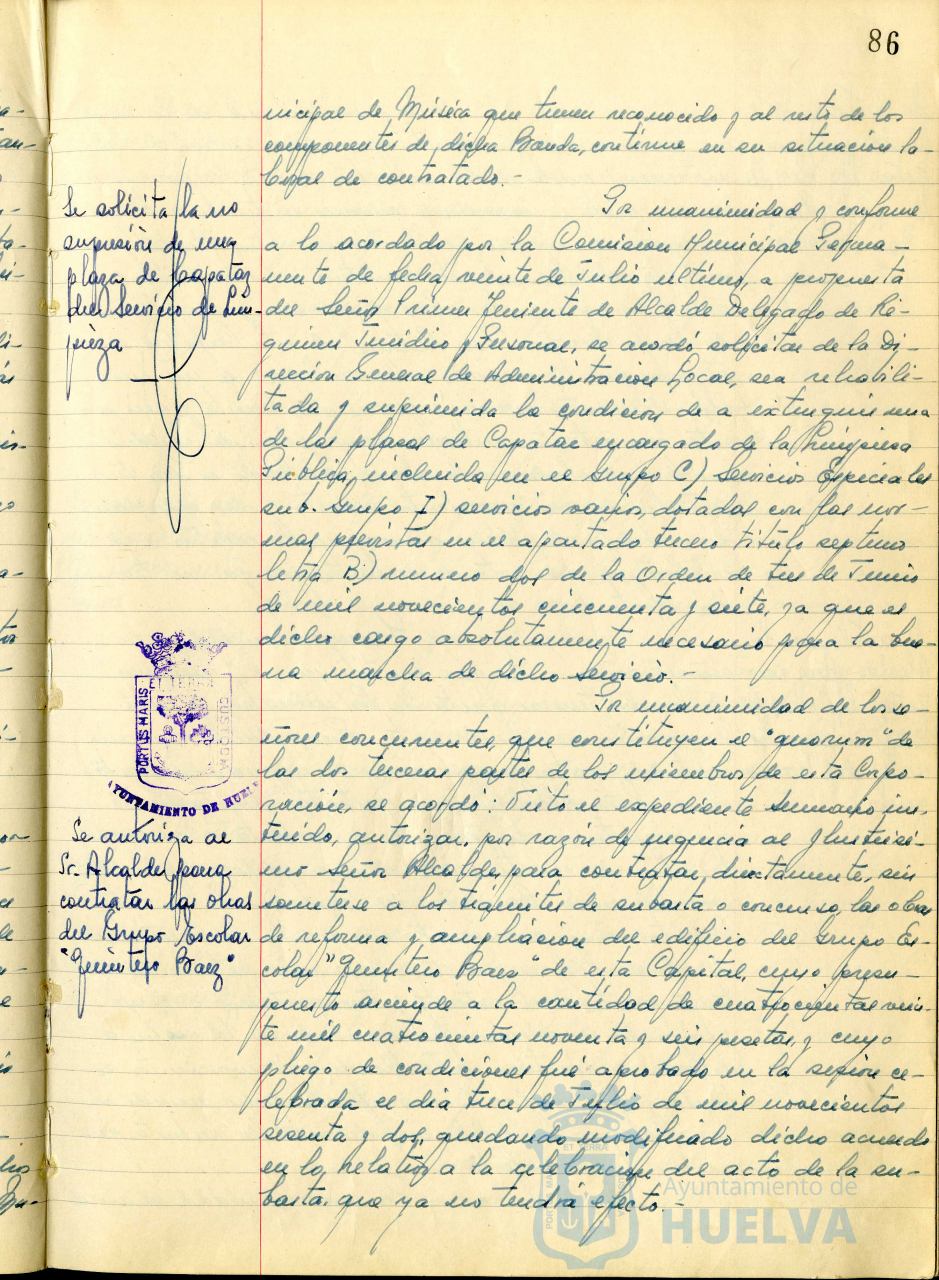 86
nicipal de Música que tienen reconocido y al resto de los
componentes de dicha Banda, continue en su situación la-
boral de contratado.-
Se solicita la no
supresión de una
plaza de Capataz
del Servicio de Lim-
pieza
Por unanimidad y conforme
a lo acordado por la Comision Municipal Perma-
nente de fecha veinte de Julio ultimo, a propuesta
del Señor Primer Teniente de Alcalde Delegado de Ré-
gimen Juridico y Personal, se acordó solicitar de la Di-
reccion General de Administracion Local, sea rehabili-
tada y suprimida la condicion de a extinguir una
de las plazas de Capataz encargado de la Limpieza
Pública, incluida en el Grupo C) Servicios Especiales
sub. Grupo I) servicios varios, dotadas con las nor-
mas previstas en el apartado tercero titulo septimo
letra B) numero dos de la Orden de tres de Junio
de mil novecientos cincuenta y siete, ya que es
dicho cargo absolutamente necesario para la bue-
na marcha de dicho servicio.-
PORTUS MARIS ET TERRAE CUSTODIAM
AYUNTAMIENTO DE HUELVA
Se autoriza al
Sr. Alcalde para
contratar las obras
del Grupo Escolar
"Quintero Baez"
Por unanimidad de los se-
ñores concurrentes, que constituyen el "quorum" de
las dos terceras partes de los miembros de esta Corpo-
ración, se acordó: Visto el expediente sumario ins-
truido, autorizar, por razón de urgencia al Ilustrisi-
mo señor Alcalde, para contratar directamente, sin
someterse a los trámites de subasta o concurso, las obras
de reforma y ampliación del edificio del Grupo Es-
colar "Quintero Baez" de esta Capital, cuyo presu-
puesto asciende a la cantidad de cuatrocientas vein-
te mil cuatrocientas noventa y seis pesetas, y cuyo
pliego de condiciones fué aprobado en la sesión ce-
lebrada el dia trece de Julio de mil novecientos
sesenta y dos, quedando modificado dicho acuerdo
en lo relativo a la celebración del acto de la su-
basta que ya no tendrá efecto.-
Ayuntamiento de
HUELVA